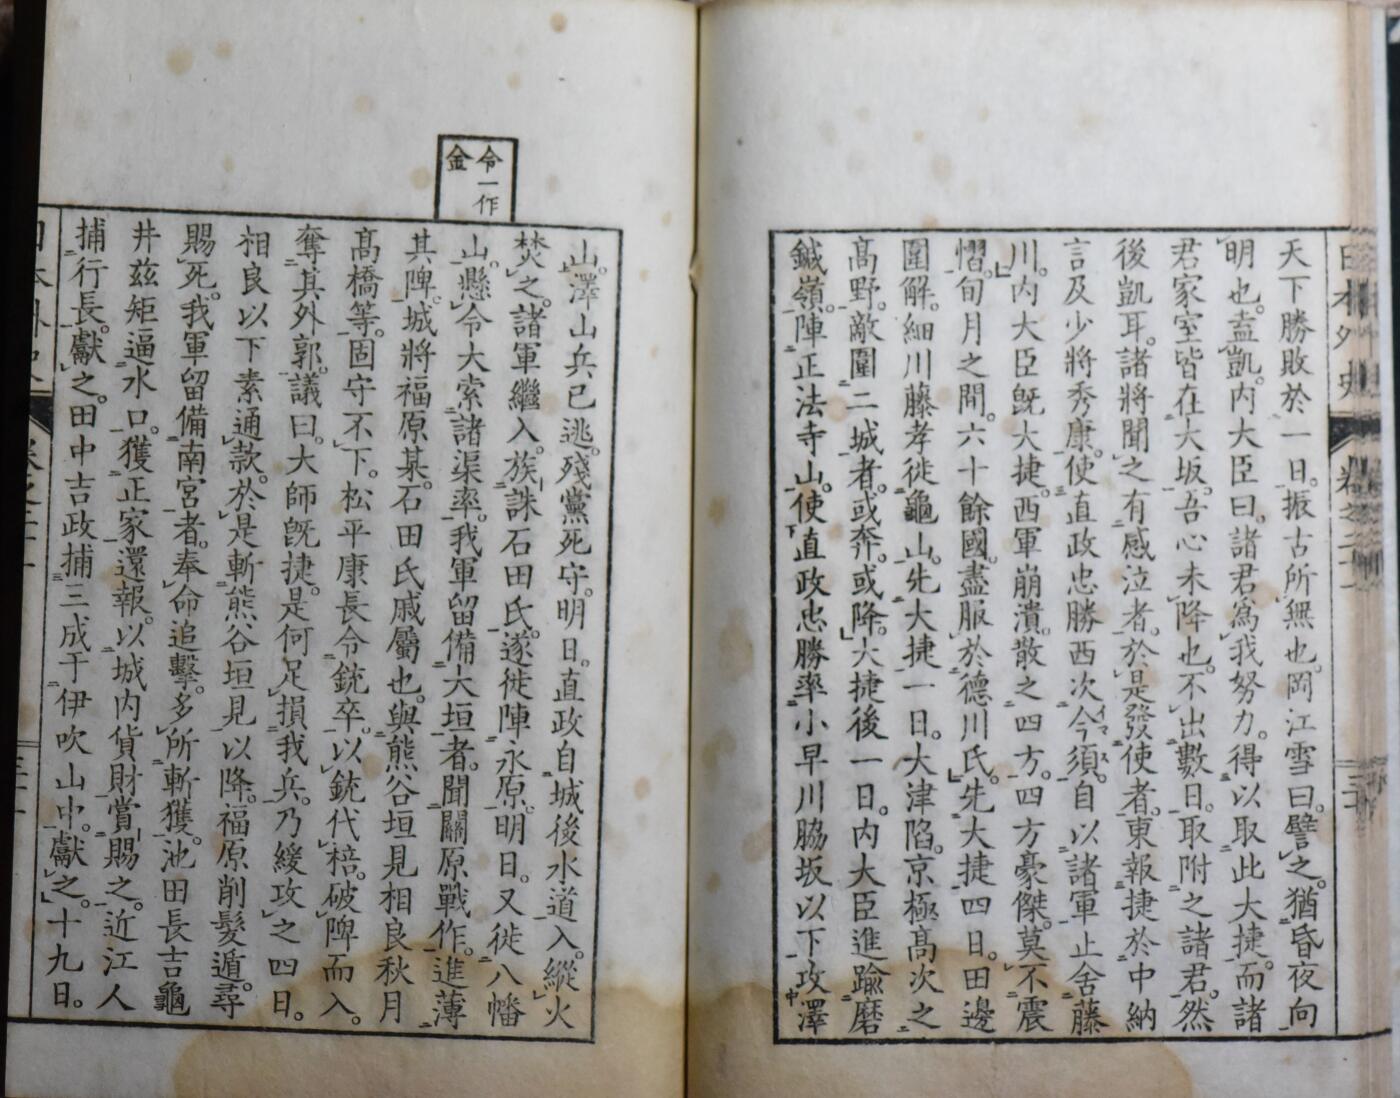 日本外史
卷之二十一
三十
天下勝敗於一日。振古所無也。岡江雪曰。譬之。猶昏夜向
明也。盍凱。内大臣曰。諸君爲我努力。得以取此大捷。而諸
君家室皆在大坂。吾心未降也。不出數日。取附之諸君。然
後凱耳。諸將聞之有感泣者。於是發使者。東報捷於中納
言及少將秀康。使直政忠勝西次今須。自以諸軍止舍藤
川。内大臣既大捷。西軍崩潰。散之四方。四方豪傑。莫不震
慴。旬月之間。六十餘國。盡服於德川氏。先大捷四日。田邊
圍解。細川藤孝徙龜山。先大捷一日。大津陷。京極高次之
高野。敵圍二城者。或奔。或降。大捷後一日。内大臣進踰磨
鍼嶺。陣正法寺山。使直政忠勝率小早川脇坂以下攻澤
令一作
金
山。澤山兵已逃。殘黨死守。明日。直政自城後水道入。縱火
焚之。諸軍繼入。族誅石田氏。遂徙陣永原。明日。又徙八幡
山。懸令大索諸渠率。我軍留備大垣者。聞關原戰作。進薄
其陴。城將福原某。石田氏戚屬也。與熊谷垣見相良秋月
高橋等。固守不下。松平康長令銃卒。以銃代棓。破陴而入。
奪其外郭。議曰。大師既捷。是何足損我兵。乃緩攻之四日。
相良以下素通款。於是斬熊谷垣見以降。福原削髮遁。尋
賜死。我軍留備南宮者。奉命追擊。多所斬獲。池田長吉龜
井茲矩逼水口。獲正家還報。以城内貨財賞賜之。近江人
捕行長。獻之。田中吉政捕三成于伊吹山中。獻之。十九日。
日本外史
卷之二十一
三十一